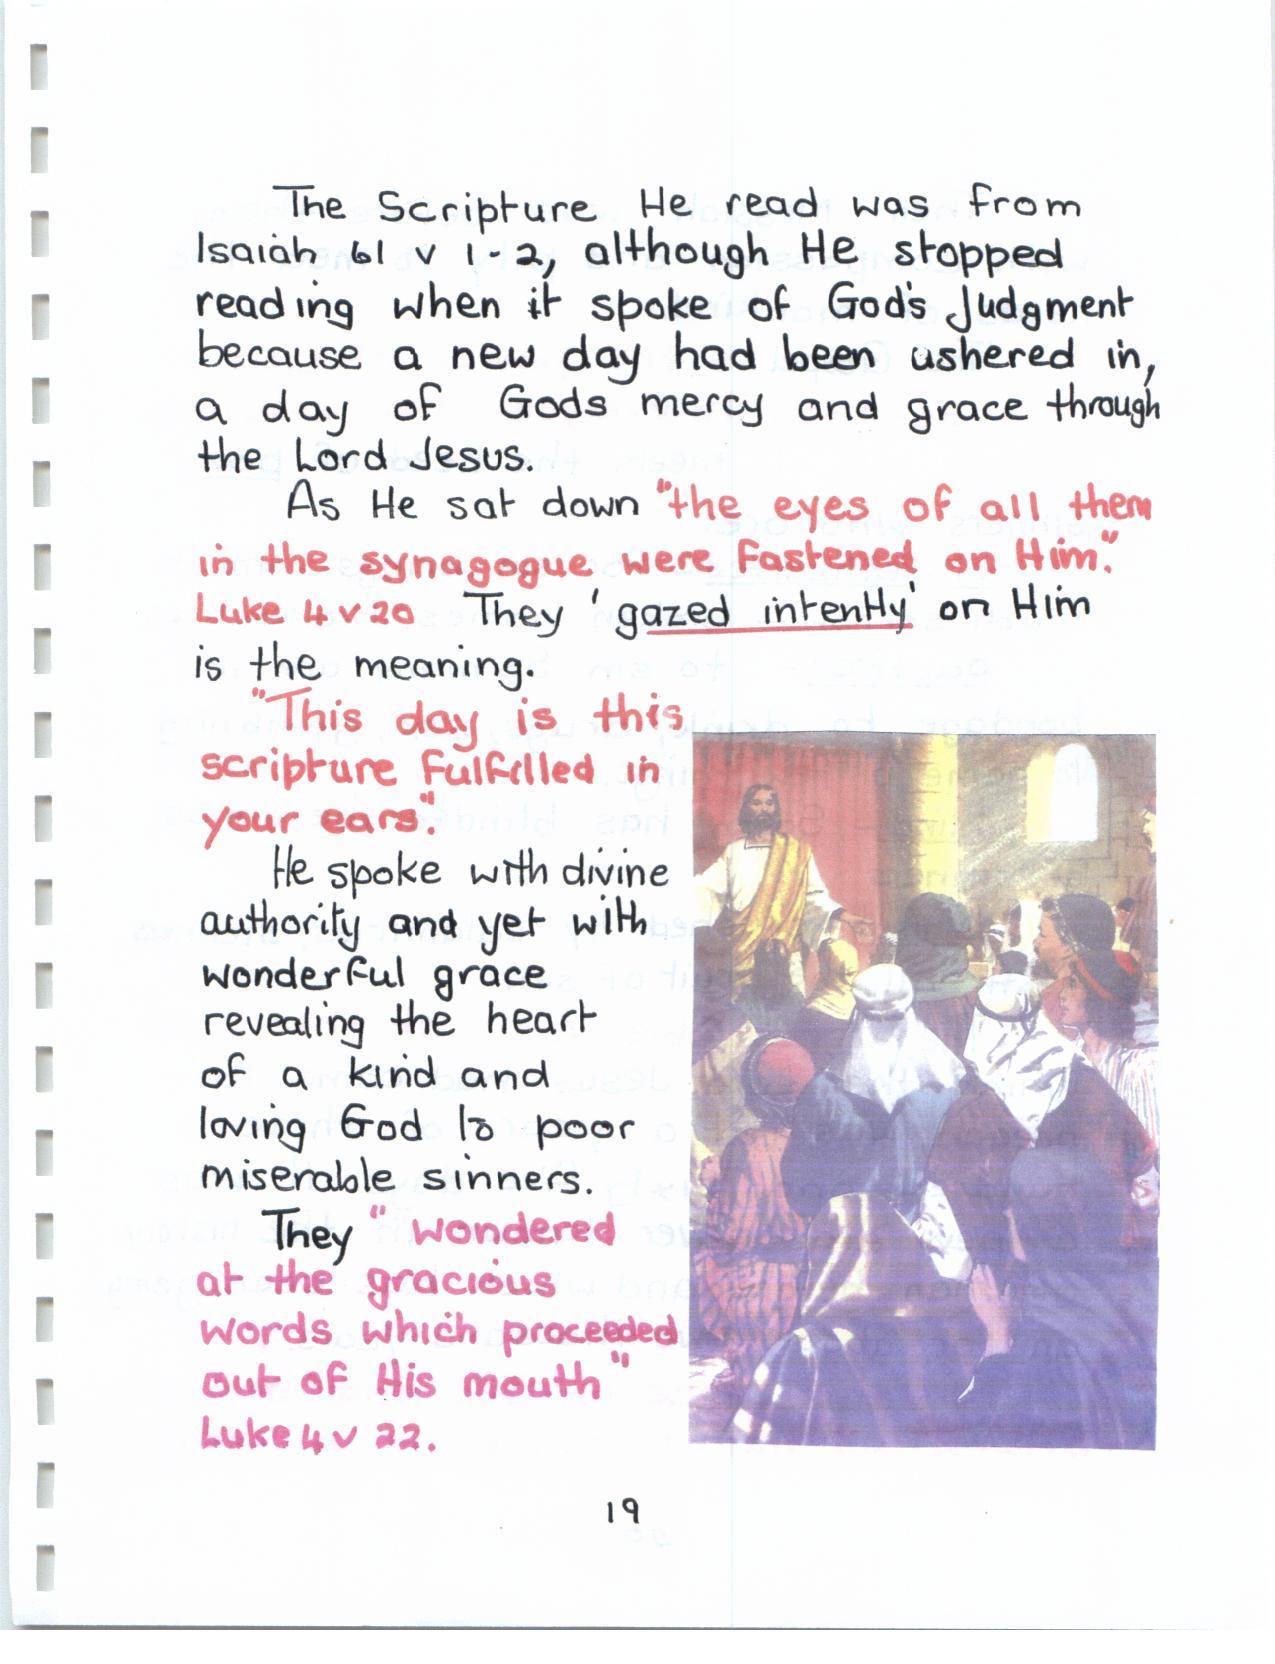 The Scripture He read was from
Isaiah 61 v 1-2, although He stopped
reading when it spoke of God's Judgment
because a new day had been ushered in,
a day of Gods mercy and grace through
the Lord Jesus.
As He sat down "the eyes of all them
in the synagogue were fastened on Him."
Luke 4 v 20 They 'gazed intently' on Him
is the meaning.
"This day is this
scripture fulfilled in
your ears".
He spoke with divine
authority and yet with
wonderful grace
revealing the heart
of a kind and
loving God to poor
miserable sinners.
They "wondered
at the gracious
words which proceeded
out of His mouth"
Luke 4 v 22.
19